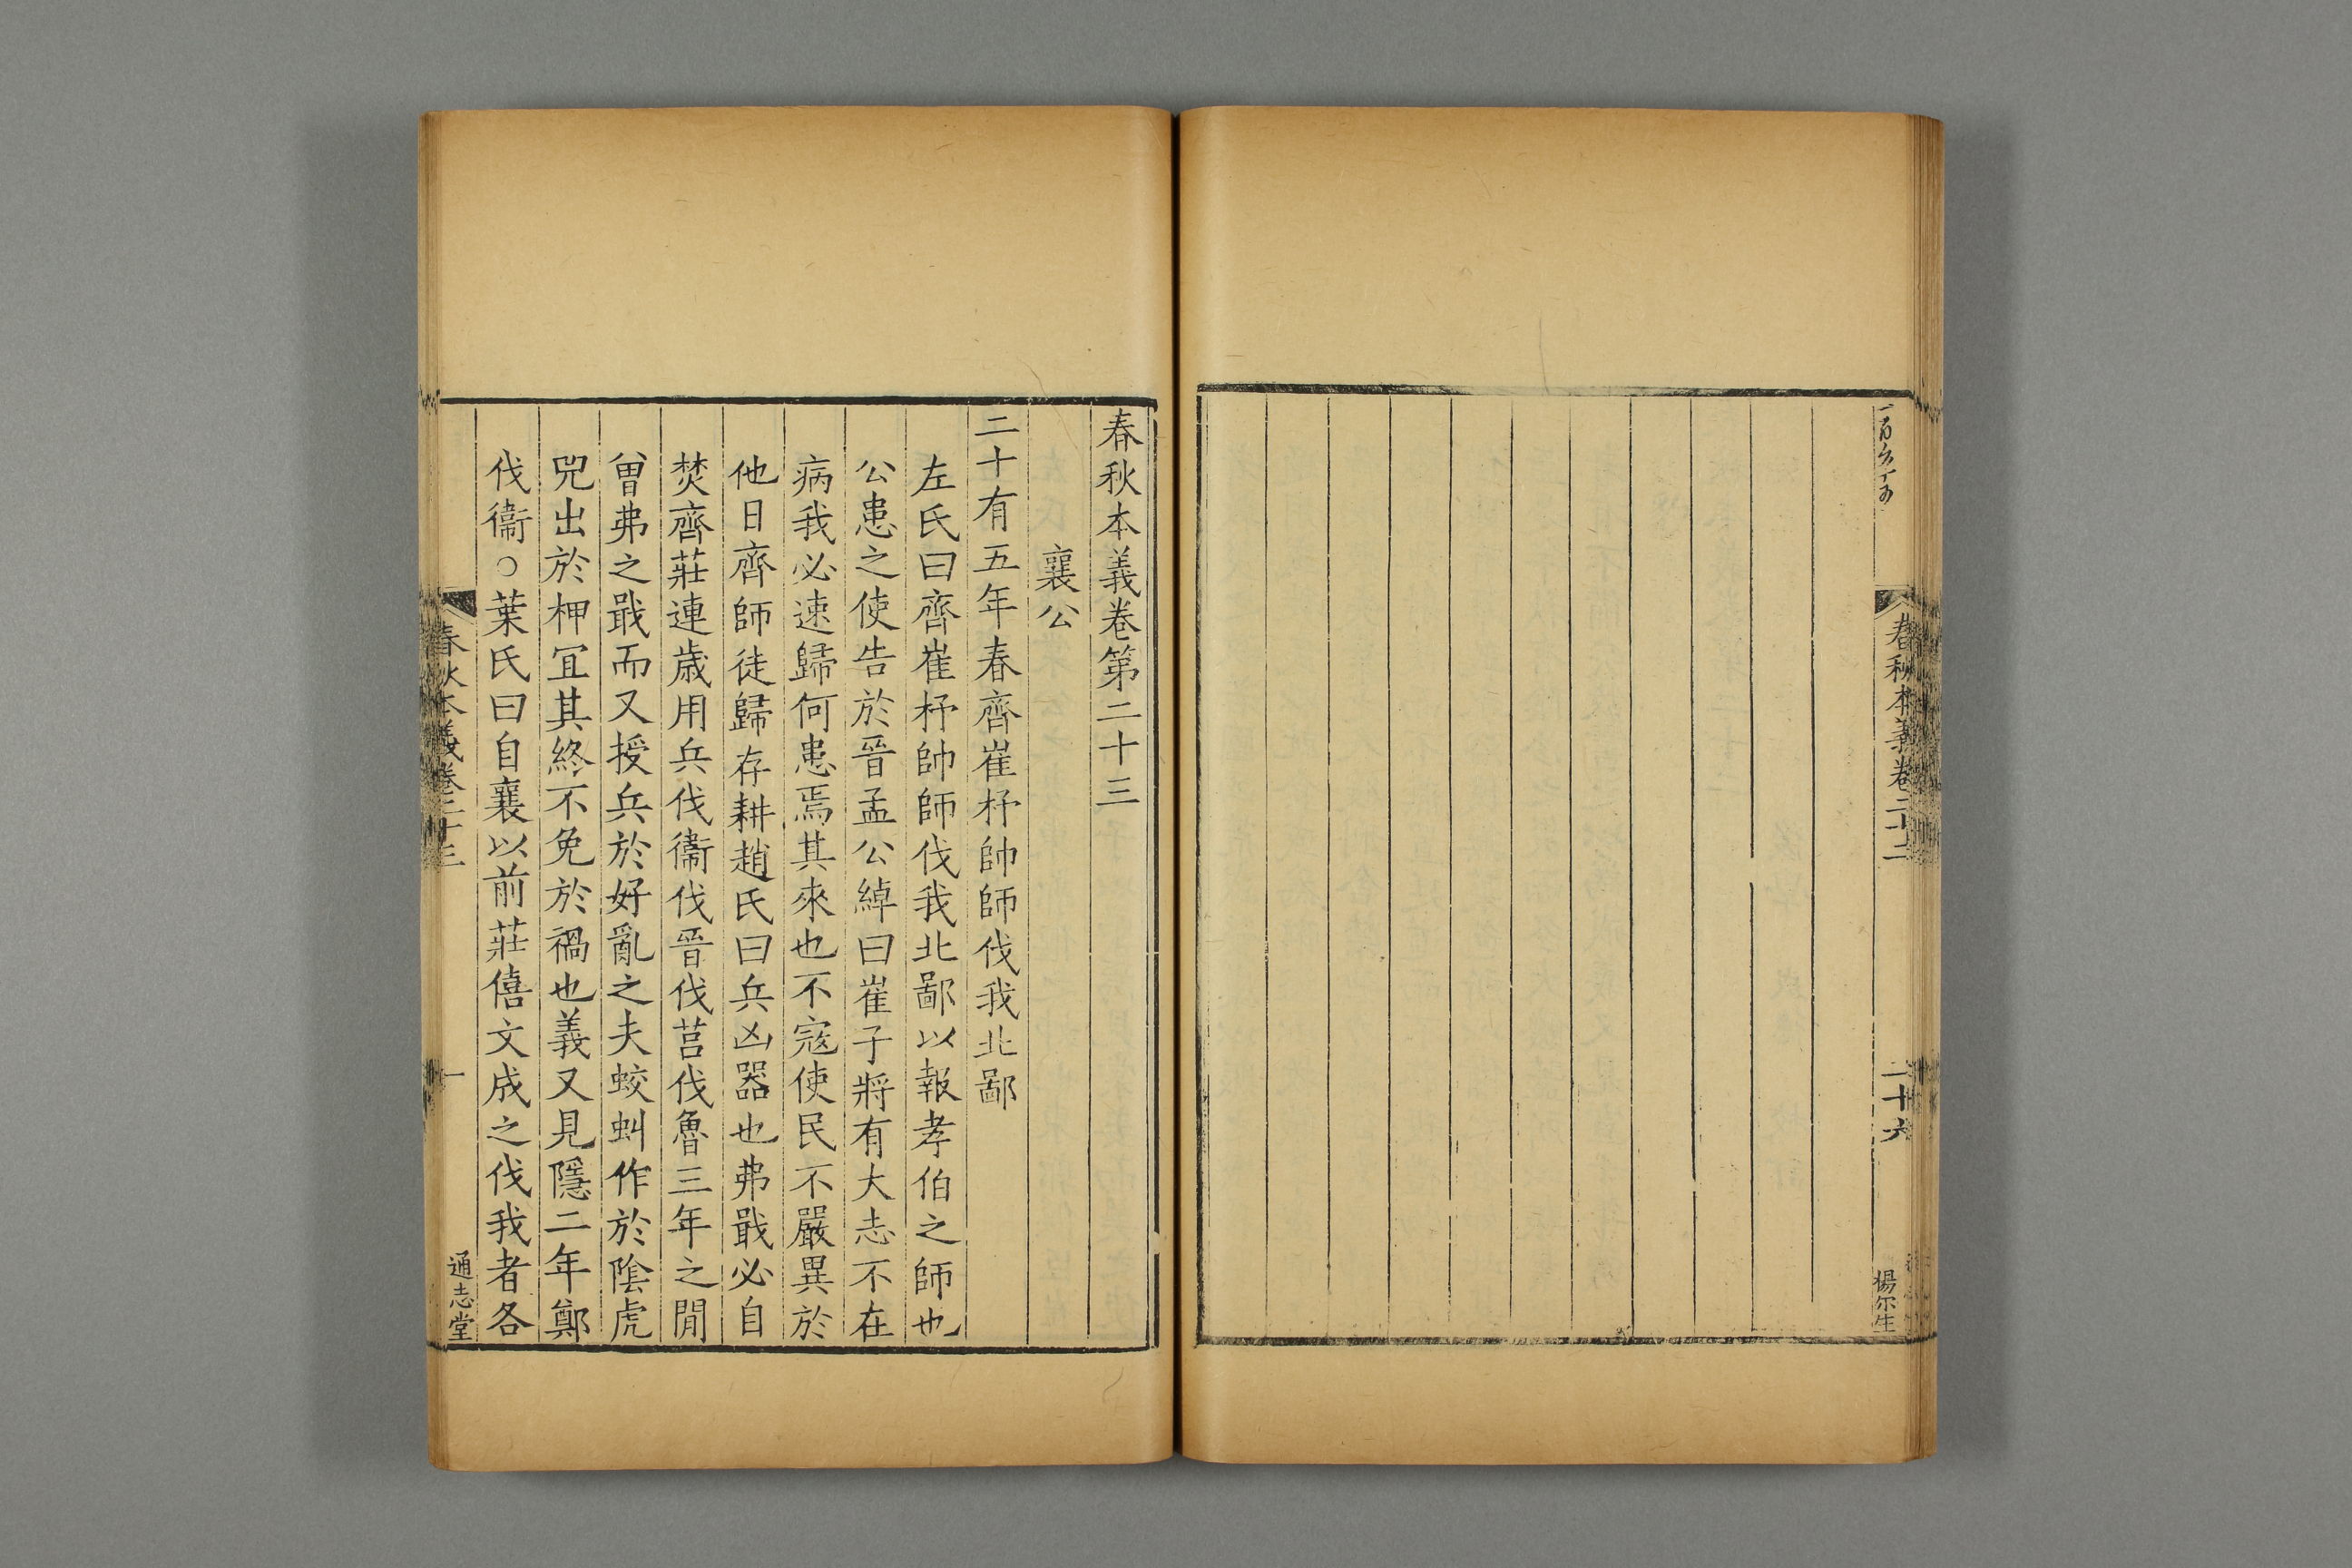 春秋本義卷二十二
二十六
楊尔生
春秋本義卷第二十三
襄公
二十有五年春齊崔杼帥師伐我北鄙
左氏曰齊崔杼帥師伐我北鄙以報孝伯之師也
公患之使告於晉孟公綽曰崔子將有大志不在
病我必速歸何患焉其來也不寇使民不嚴異於
他日齊師徒歸存耕趙氏曰兵凶器也弗戢必自
焚齊莊連歲用兵伐衞伐晉伐莒伐魯三年之閒
曾弗之戢而又授兵於好亂之夫蛟虯作於陰虎
兕出於柙宜其終不免於禍也義又見隱二年鄭
伐衞○葉氏曰自襄以前莊僖文成之伐我者各
春秋本義卷二十三
一
通志堂